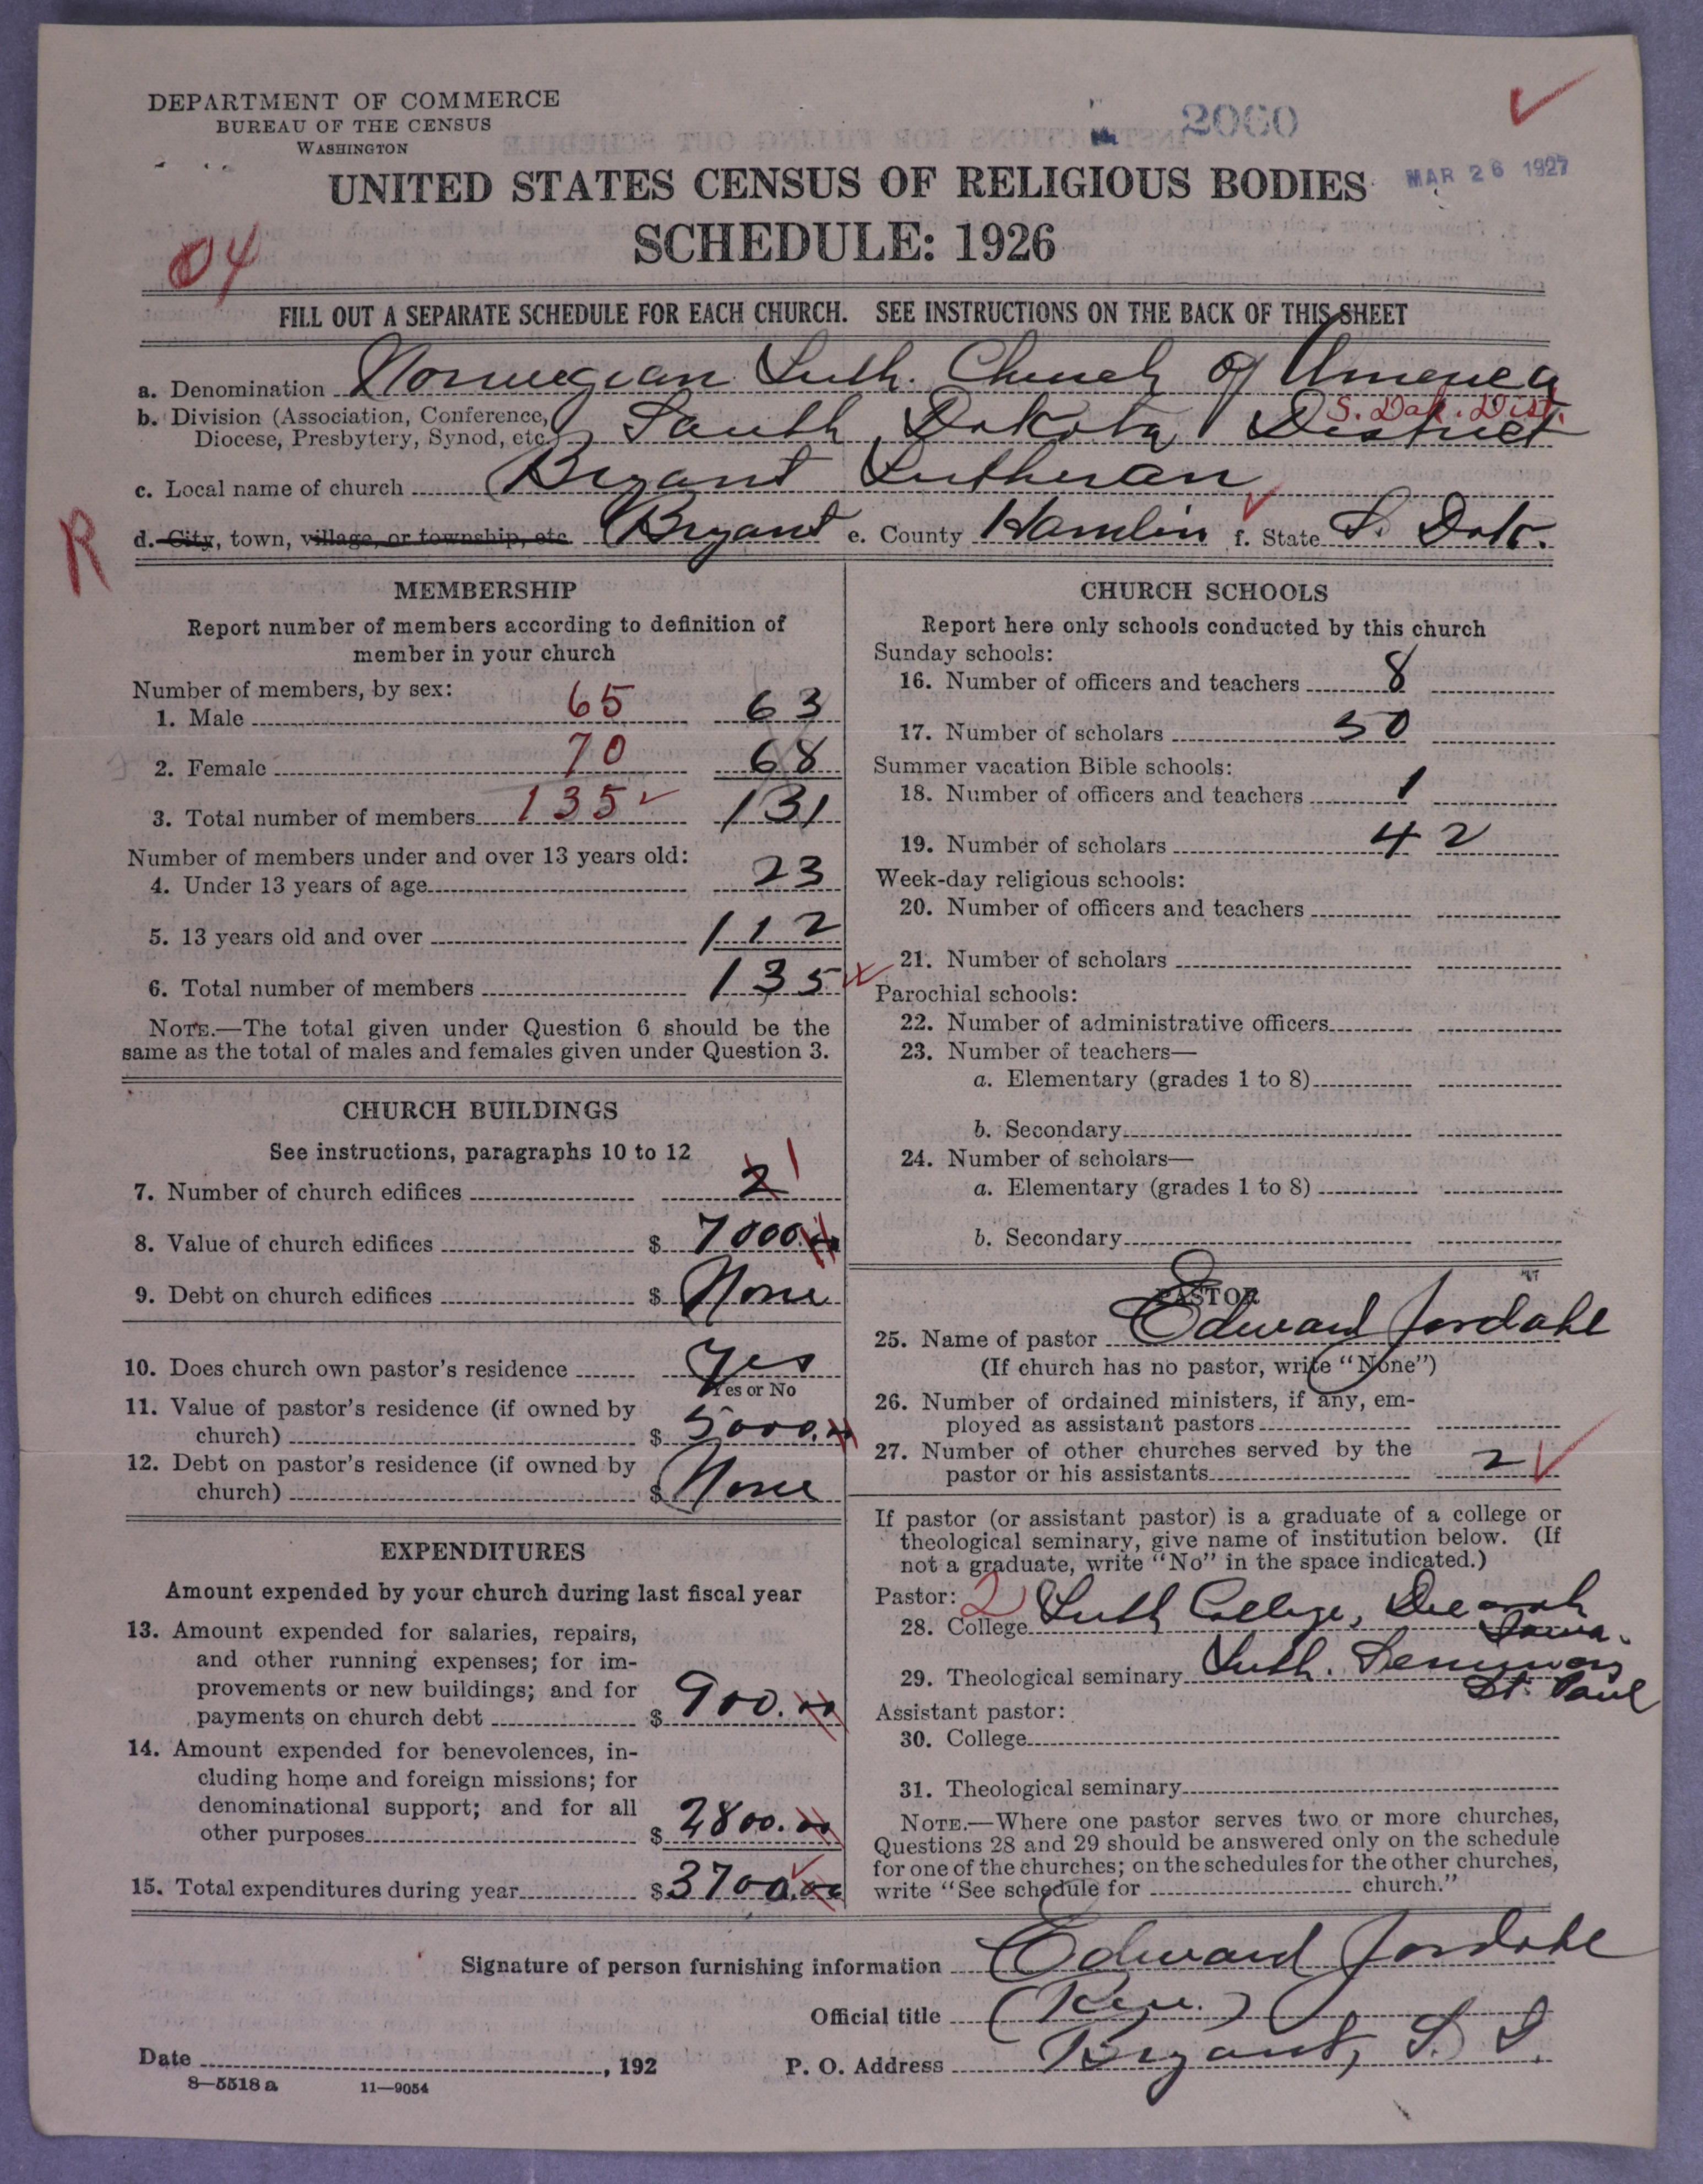 DEPARTMENT OF COMMERCE
BUREAU OF THE CENSUS
WASHINGTON
2060
MAR 26 1927
UNITED STATES CENSUS OF RELIGIOUS BODIES
SCHEDULE: 1926
04
FILL OUT A SEPARATE SCHEDULE FOR EACH CHURCH. SEE INSTRUCTIONS ON THE BACK OF THIS SHEET
a. Denomination Norwegian Luth. Church of America
S. Dak. Dist.
b. Division (Association, Conference, Diocese, Presbytery, Synod, etc.) South Dakota District
c. Local name of church Bryant Lutheran
R
d. City, town, village, or township, etc. Bryant e. County Hamlin f. State S. Dak.
MEMBERSHIP
Report number of members according to definition of
member in your church
Number of members, by sex:
1. Male 65 63
2. Female 70 68
3. Total number of members 135 131
Number of members under and over 13 years old:
4. Under 13 years of age 23
5. 13 years old and over 112
6. Total number of members 135
NOTE.—The total given under Question 6 should be the
same as the total of males and females given under Question 3.
CHURCH BUILDINGS
See instructions, paragraphs 10 to 12
7. Number of church edifices 2 1
8. Value of church edifices $ 7000.00
9. Debt on church edifices $ None
10. Does church own pastor's residence Yes
Yes or No
11. Value of pastor's residence (if owned by
church) $ 5000.00
12. Debt on pastor's residence (if owned by
church) $ None
EXPENDITURES
Amount expended by your church during last fiscal year
13. Amount expended for salaries, repairs,
and other running expenses; for im-
provements or new buildings; and for
payments on church debt $ 900.00
14. Amount expended for benevolences, in-
cluding home and foreign missions; for
denominational support; and for all
other purposes $ 2800.00
15. Total expenditures during year $ 3700.00
CHURCH SCHOOLS
Report here only schools conducted by this church
Sunday schools:
16. Number of officers and teachers 8
17. Number of scholars 50
Summer vacation Bible schools:
18. Number of officers and teachers 1
19. Number of scholars 42
Week-day religious schools:
20. Number of officers and teachers
21. Number of scholars
Parochial schools:
22. Number of administrative officers
23. Number of teachers—
a. Elementary (grades 1 to 8)
b. Secondary
24. Number of scholars—
a. Elementary (grades 1 to 8)
b. Secondary
PASTOR
25. Name of pastor Edward Jordahl
(If church has no pastor, write "None")
26. Number of ordained ministers, if any, em-
ployed as assistant pastors
27. Number of other churches served by the
pastor or his assistants 2
If pastor (or assistant pastor) is a graduate of a college or
theological seminary, give name of institution below. (If
not a graduate, write "No" in the space indicated.)
Pastor: 2
28. College Luth College, Decorah
Iowa.
29. Theological seminary Luth. Seminary
St. Paul
Assistant pastor:
30. College
31. Theological seminary
NOTE.—Where one pastor serves two or more churches,
Questions 28 and 29 should be answered only on the schedule
for one of the churches; on the schedules for the other churches,
write "See schedule for church."
Signature of person furnishing information Edward Jordahl
Official title (Rev.)
Date , 192 P. O. Address Bryant, S. D.
8—5518 a 11—9054